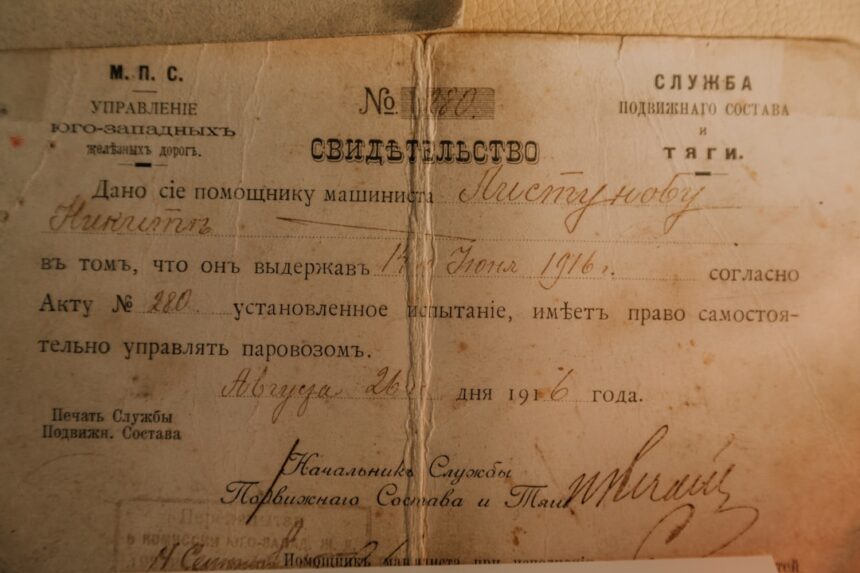 М. П. С.
УПРАВЛЕНІЕ
ЮГО-ЗАПАДНЫХЪ
желѣзныхъ дорогъ.
№ 280.
СВИДѢТЕЛЬСТВО
СЛУЖБА
ПОДВИЖНАГО СОСТАВА
И
ТЯГИ.
Дано сіе помощнику машиниста Пистунову
Никитѣ
въ томъ, что онъ выдержавъ Іюня 1916 г. согласно
Акту № 280 установленное испытаніе, имѣетъ право самостоя-
тельно управлять паровозомъ.
Августа 26 дня 1916 года.
Печать Службы
Подвижн. Состава
Начальникъ Службы
Подвижнаго Состава и Тяги
в комиссіи Юго-Запад. ж. д.
Помощникъ машиниста при